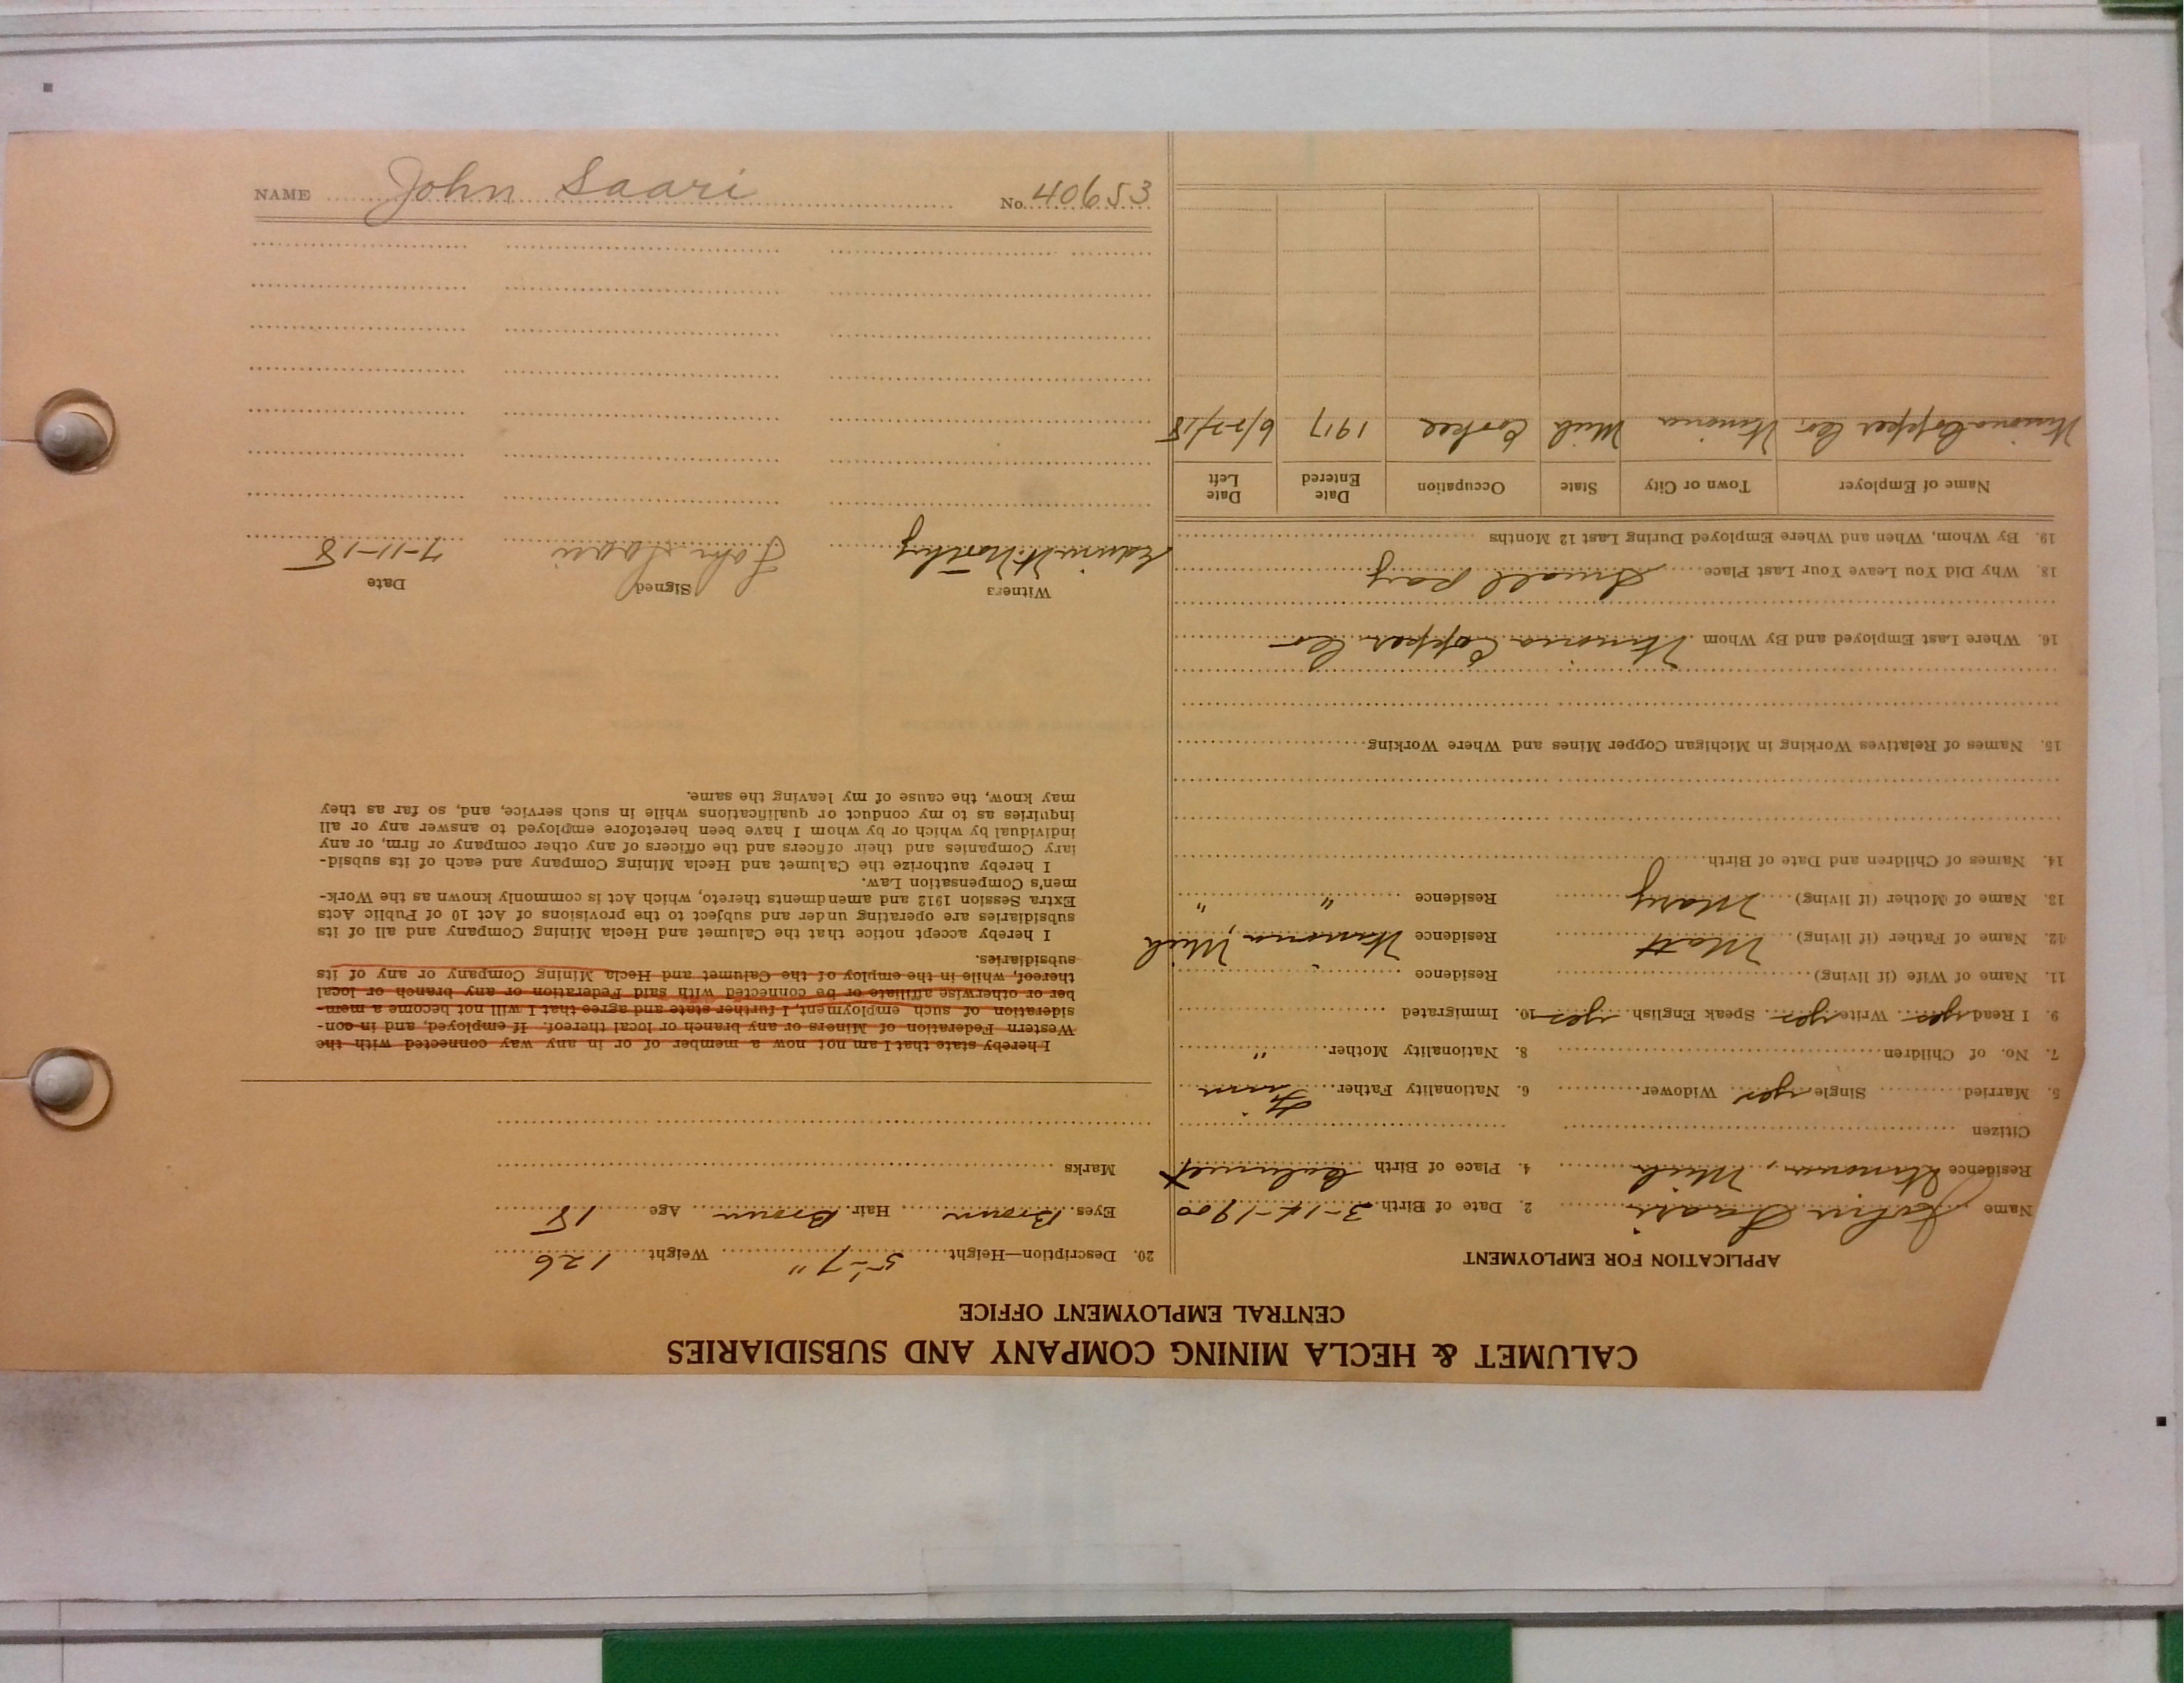 CALUMET & HECLA MINING COMPANY AND SUBSIDIARIES
CENTRAL EMPLOYMENT OFFICE
APPLICATION FOR EMPLOYMENT
Name John Saari 2. Date of Birth 3-14-1900
Residence Winona, Mich 4. Place of Birth Calumet
Citizen
5. Married Single yes Widower 6. Nationality Father Finn
7. No. of Children 8. Nationality Mother "
9. I Read yes Write yes Speak English yes 10. Immigrated
11. Name of Wife (if living) Residence
12. Name of Father (if living) Matt Residence Winona, Mich
13. Name of Mother (if living) Mary Residence " "
14. Names of Children and Date of Birth
15. Names of Relatives Working in Michigan Copper Mines and Where Working
16. Where Last Employed and By Whom Winona Copper Co
18. Why Did You Leave Your Last Place Small Pay
19. By Whom, When and Where Employed During Last 12 Months
Name of Employer Town or City State Occupation Date Entered Date Left
Winona Copper Co. Winona Mich 1917 6/27/18
20. Description—Height 5'-7" Weight 126
Eyes Brown Hair Brown Age 18
Marks
I hereby state that I am not now a member of or in any way connected with the
Western Federation of Miners or any branch or local thereof. If employed, and in con-
sideration of such employment, I further state and agree that I will not become a mem-
ber or otherwise affiliate or be connected with said Federation or any branch or local
thereof, while in the employ of the Calumet and Hecla Mining Company or any of its
subsidiaries.
I hereby accept notice that the Calumet and Hecla Mining Company and all of its
subsidiaries are operating under and subject to the provisions of Act 10 of Public Acts
Extra Session 1912 and amendments thereto, which Act is commonly known as the Work-
men's Compensation Law.
I hereby authorize the Calumet and Hecla Mining Company and each of its subsid-
iary Companies and their officers and the officers of any other company or firm, or any
individual by which or by whom I have been heretofore employed to answer any or all
inquiries as to my conduct or qualifications while in such service, and, so far as they
may know, the cause of my leaving the same.
Witness Signed Date
Edwin John Saari 7-11-18
NAME John Saari No. 40653